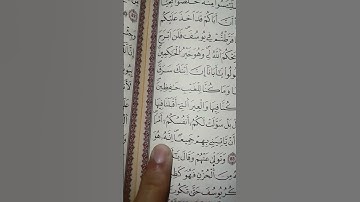 مِنْهُ خَلَصُوا
أَنَّ أَبَاكُمْ قَدْ أَخَذَ عَلَيْكُم
فَرَّطتُمْ فِي يُوسُفَ فَلَنْ أَبْرَحَ
يَحْكُمَ اللَّهُ لِي وَهُوَ خَيْرُ الْحَٰكِمِينَ
قُولُوا يَٰأَبَانَا إِنَّ ابْنَكَ سَرَقَ
وَمَا كُنَّا لِلْغَيْبِ حَٰفِظِينَ
كُنَّا فِيهَا وَالْعِيرَ الَّتِي أَقْبَلْنَا فِيهَا
قَالَ بَلْ سَوَّلَتْ لَكُمْ أَنفُسُكُمْ أَمْرًا
أَن يَأْتِيَنِي بِهِمْ جَمِيعًا إِنَّهُ هُوَ
وَتَوَلَّىٰ عَنْهُمْ وَقَالَ
مِنَ الْحُزْنِ فَهُوَ
يُوسُفَ حَتَّىٰ تَكُونَ